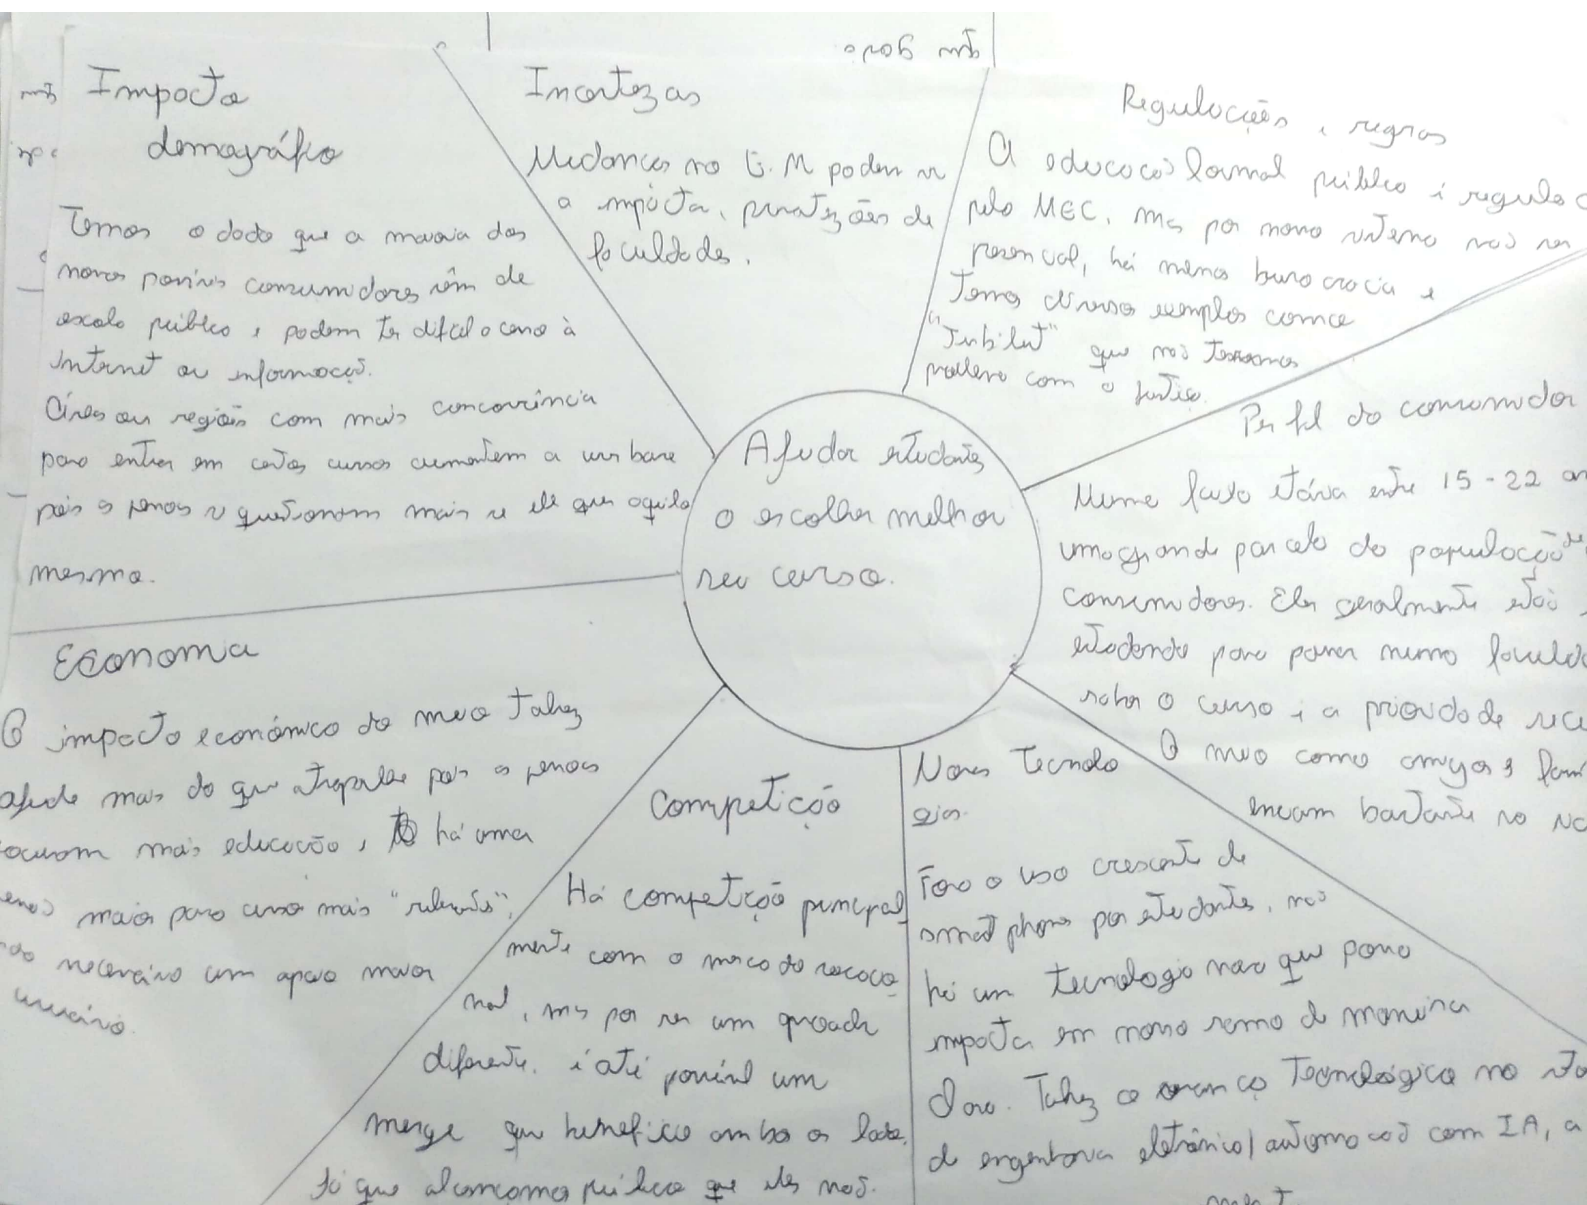 Impacto
demográfico
Temos o dado que a maioria dos
novos possíveis consumidores vêm de
escola pública e podem ter difícil acesso à
internet ou informação.
Áreas ou regiões com mais concorrência
para entrar em certos cursos aumentam a
pois as pessoas se questionam mais se ele quer aquilo
mesmo.
Incertezas
Mudanças no E.M podem vir
a impactar, de
faculdades.
que gera
Regulações e regras
A educação formal pública é regulada
pelo MEC, mas por nosso sistema não ser
presencial, há menos burocracia e
Temos diversos exemplos como
"Jubilut" que não
problema com a justiça.
Perfil do consumidor
Numa faixa etária entre 15-22
uma grande parcela da população
consumidores. Eles geralmente estão
estudando para passar numa
saber o curso é a prioridade
O meio como amigos e
bastante no
Ajudar estudantes
a escolher melhor
seu curso.
Economia
O impacto econômico do meio talvez
ajude mais do que atrapalhe pois as pessoas
mais educação, há uma
maior para curso mais
necessário um apoio maior
Competição
Há competição principal
mente com o
nal, mas por ser um
diferente, é até possível um
merge que beneficie ambos os lados,
já que alcançamos público que eles não.
Novas Tecnolo
gias.
Fora o uso crescente de
smartphone por estudantes, não
há um tecnologia nova que possa
impactar em nosso ramo de maneira
clara. Talvez o avanço tecnológico no
de engenharia eletrônica/automação com IA, a